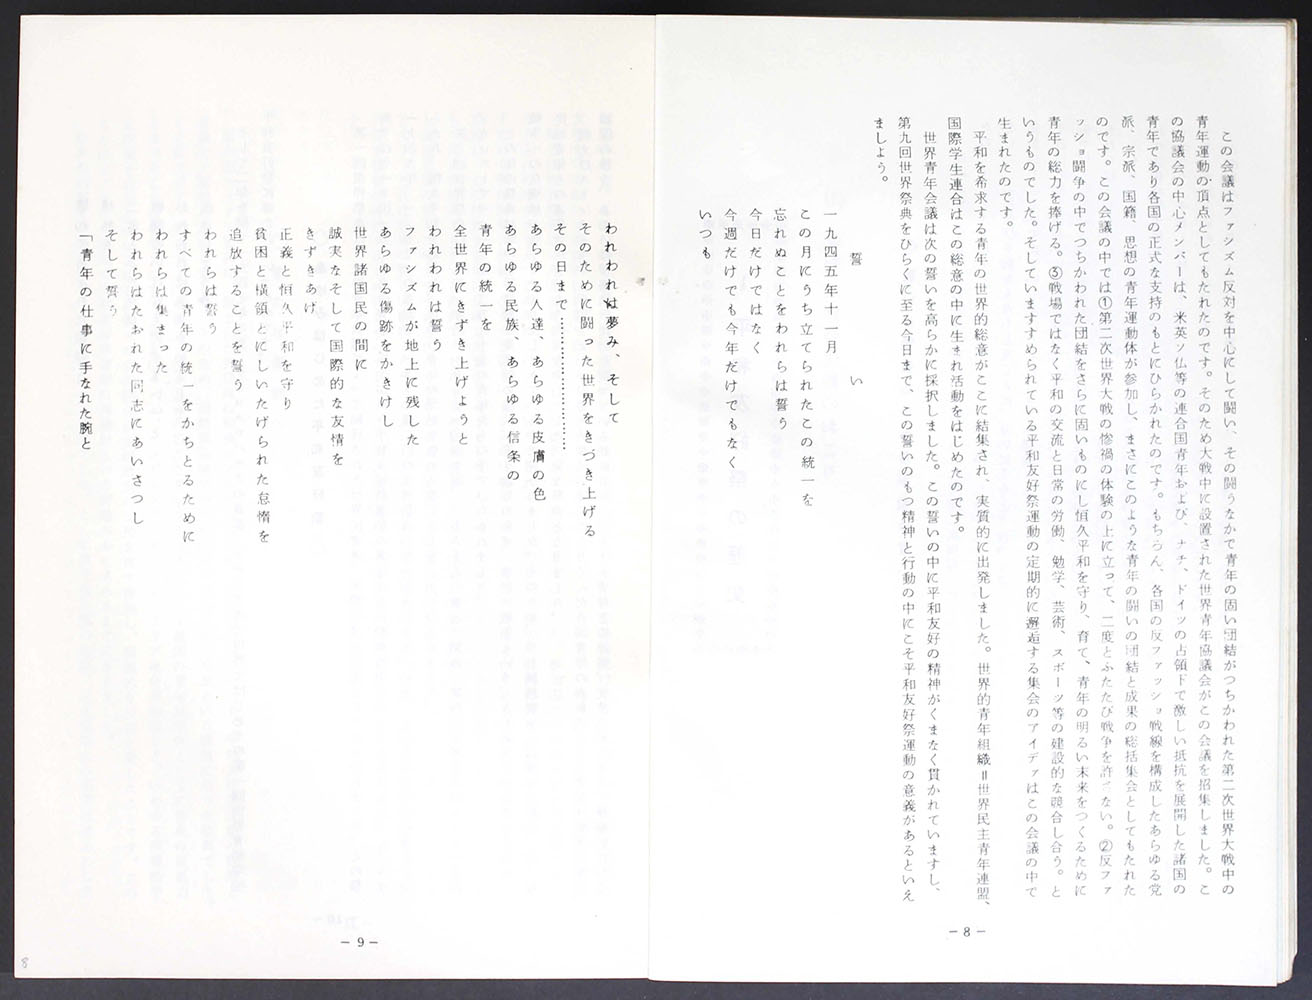 この会議はファシズム反対を中心にして闘い、その闘うなかで青年の固い団結がつちかわれた第二次世界大戦中の
青年運動の頂点としてもたれたのです。そのため大戦中に設置された世界青年協議会がこの会議を招集しました。こ
の協議会の中心メンバーは、米英ソ仏等の連合国青年および、ナチ、ドイツの占領下で激しい抵抗を展開した諸国の
青年であり各国の正式な支持のもとにひらかれたのです。もちろん、各国の反ファッショ戦線を構成したあらゆる党
派、宗派、国籍、思想の青年運動体が参加し、まさにこのような青年の闘いの団結と成果の総括集会としてもたれた
のです。この会議の中では①第二次世界大戦の惨禍の体験の上に立って、二度とふたたび戦争を許さない。②反ファ
ッショ闘争の中でつちかわれた団結をさらに固いものにし恒久平和を守り、育て、青年の明るい未来をつくるために
青年の総力を捧げる。③戦場ではなく平和の交流と日常の労働 勉学、芸術、スポーツ等の建設的な競合し合う。と
いうものでした。そしていますすめられている平和友好祭運動の定期的に邂逅する集会のアイデアはこの会議の中で
生まれたのです。
平和を希求する青年の世界的総意がここに結集され、実質的に出発しました。世界的青年組織=世界民主青年連盟、
国際学生連合はこの総意の中に生まれ活動をはじめたのです。
世界青年会議は次の誓いを高らかに採択しました。この誓いの中に平和友好の精神がくまなく貫かれていますし、
第九回世界祭典をひらくに至る今日まで、この誓いのもつ精神と行動の中にこそ平和友好祭運動の意義があるといえ
ましよう。
誓い
一九四五年十一月
この月にうち立てられたこの統一を
忘れぬことをわれらは誓う
今日だけではなく
今週だけでも今年だけでもなく
いつも
－8－
われわれは夢み、そして
そのために闘った世界をきづき上げる
その日まで……………………
あらゆる人達、あらゆる皮膚の色
あらゆる民族、あらゆる信条の
青年の統一を
全世界にきずき上げようと
われわれは誓う
ファシズムが地上に残した
あらゆる傷跡をかきけし
世界諸国民の間に
誠実なそして国際的な友情を
きずきあげ
正義と恒久平和を守り
貧困と横領とにしいたげられた怠惰を
追放することを誓う
われらは誓う
すべての青年の統一をかちとるために
われらは集まった
われらはたおれた同志にあいさつし
そして誓う
「青年の仕事に手なれた腕と
－9－
8